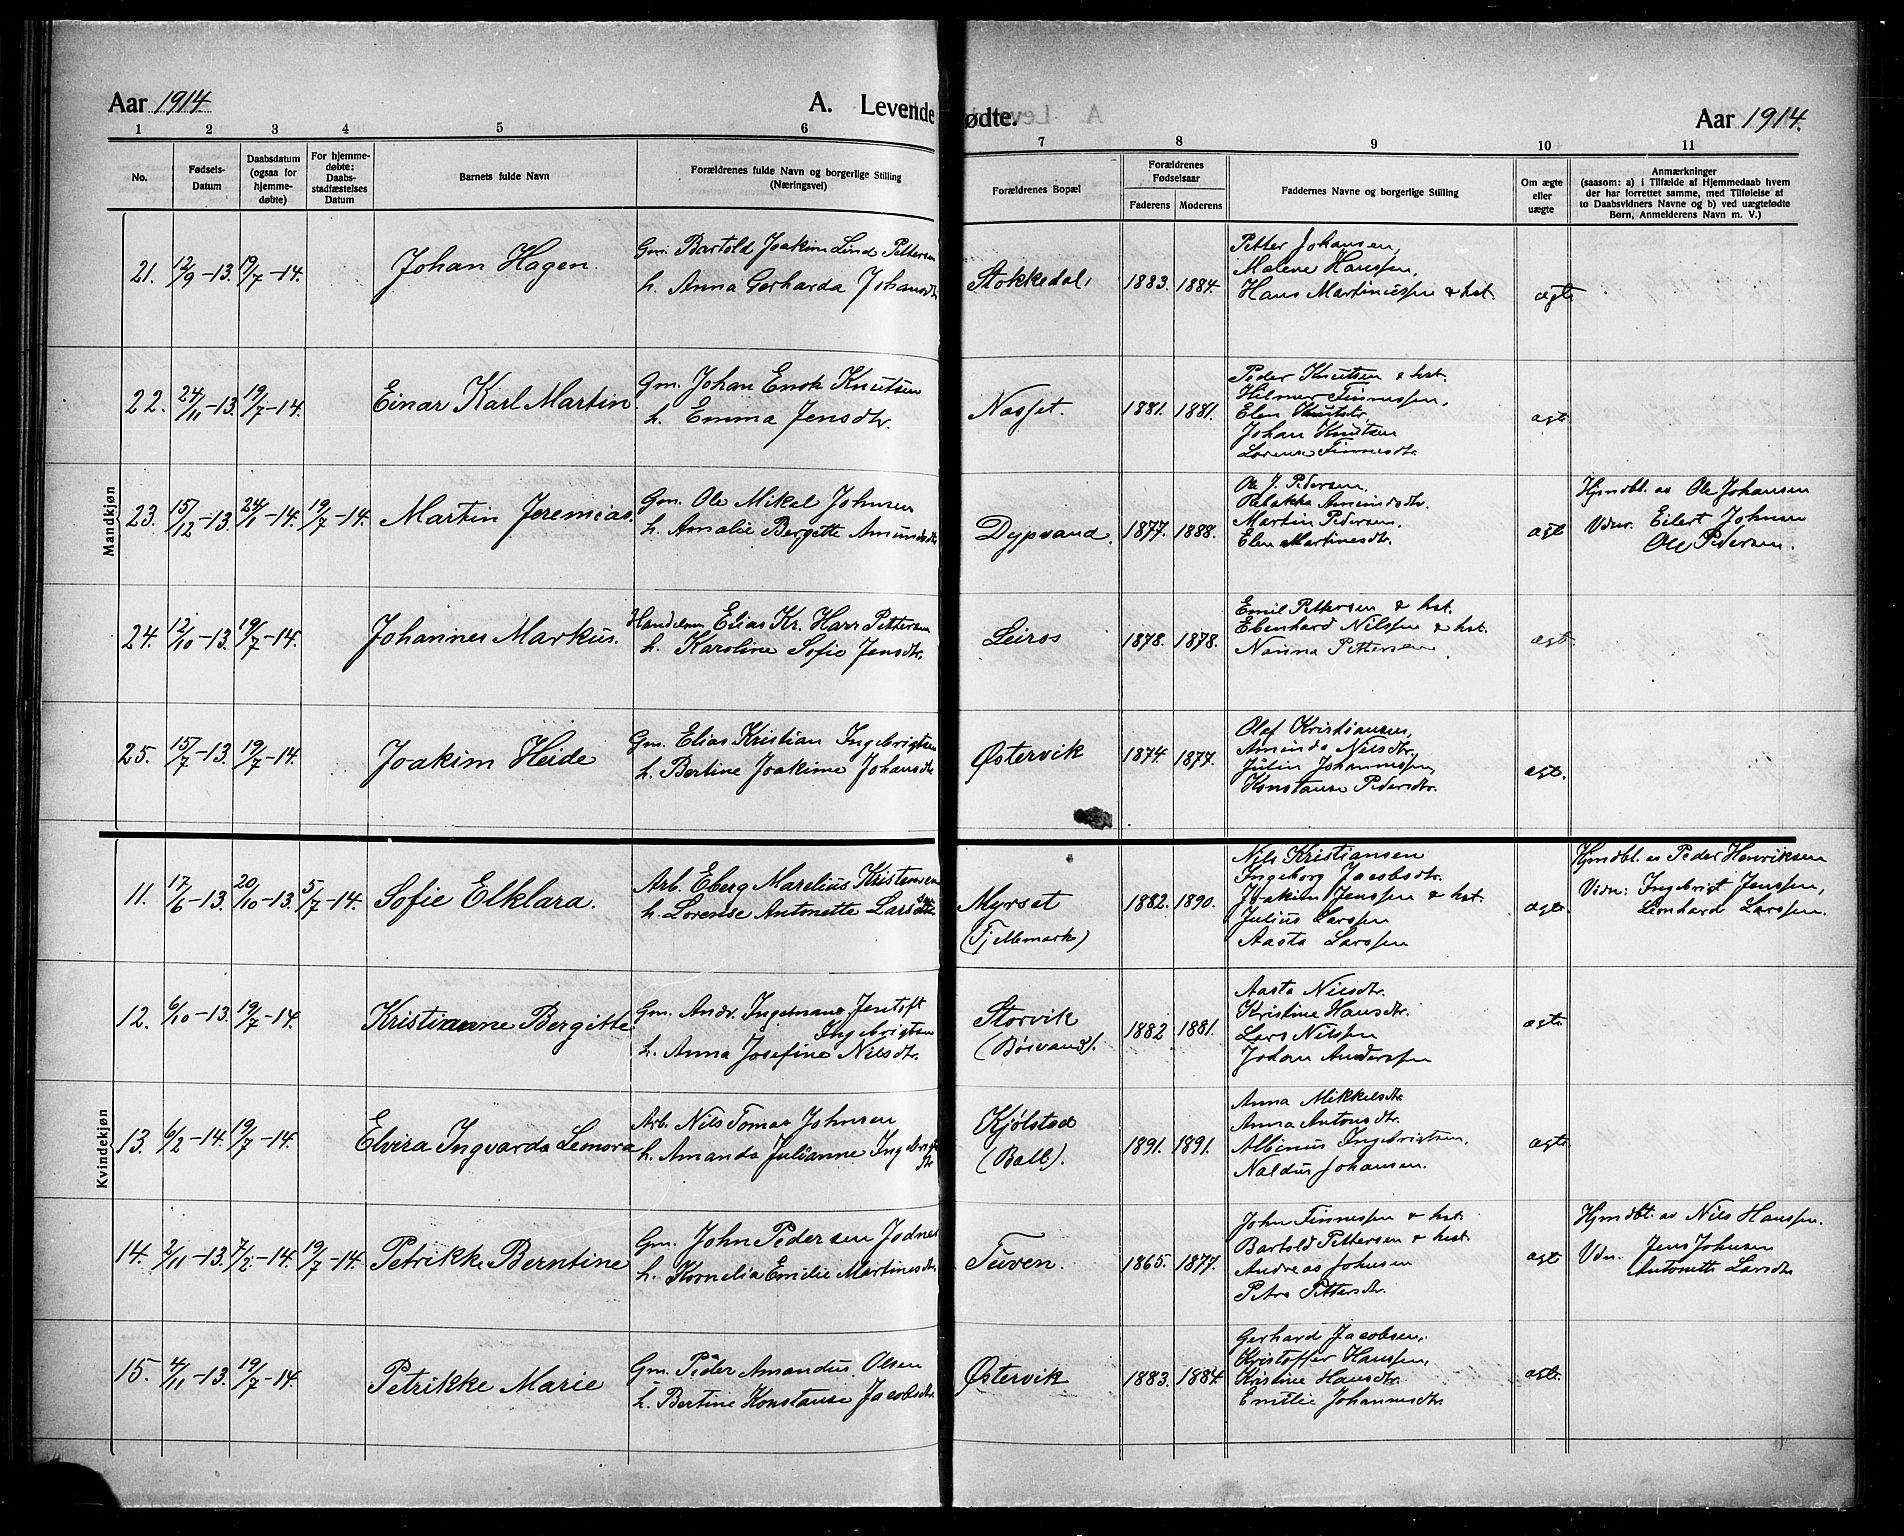 Aar 1914
A. Levende
ødte.
Aar 1914.
1 2 3 4 5 6 7 8 9 10 11
No.
Fødsels-
Datum
Daabsdatum
(ogsaa for
hjemme-
døbte)
For hjemme-
døbte:
Daabs-
stadfæstelses
Datum
Barnets fulde Navn
Forældrenes fulde Navn og borgerlige Stilling
(Næringsvei)
Forældrenes Bopæl
Forældrenes
Fødselsaar
Faderens Moderens
Faddernes Navne og borgerlige Stilling
Om ægte
eller
uægte
Anmærkninger
(saasom: a) i Tilfælde af Hjemmedaab hvem
der har forrettet samme, med Tilføielse af
to Daabsvidners Navne og b) ved uægtefødte
Børn, Anmelderens Navn m. V.)
Mandkjøn
21. 12/9-13. 19/7-14. Johan Hagen.
Gm. Bartold Joakim Lind Pettersen
h. Anna Gerharda Johansdtr
Stokkedal, 1883. 1884.
Petter Johansen,
Malene Hanssen,
Hans Martinussen & hst.
ægte
22. 24/11-13. 19/7-14. Einar Karl Martin
Gm. Johan Enok Knutsen
h. Emma Jensdtr.
Nosset. 1881. 1881.
Peder Knutsen & hst.
Hilmer Finnessen,
Elen Knutsdtr.
Johan Knutsen
Lorense Finnesdtr.
ægte
23. 15/12-13. 24/1-14. 19/7-14. Martin Jeremias.
Gm. Ole Mikal Johnsen
h. Amalie Bergitte Amundsdtr
Dypvand. 1877. 1888.
Ole J. Pedersen,
Rebakka Amundsdtr.
Martin Pedersen.
Elen Martinesdtr.
ægte
Hjmdbt. av Ole Johansen
Vdnr. Eilert Johnsen
Ole Pedersen.
24. 12/10-13. 19/7-14. Johannes Markus.
Handelsm Elias Kr. Harr Pettersen
h. Karoline Sofie Jensdtr.
Leiros 1878. 1878.
Emil Pettersen & hst.
Ebenhard Nilssen & hst.
Nanna Pettersen.
ægte
25. 15/7-13. 19/7-14. Joakim Heide
Gm. Elias Kristian Ingebrigtsen
h. Bertine Joakime Johansdtr
Østervik 1874. 1877.
Olaf Kristiansen,
Aminda Nilsdtr.
Julin Johannessen,
Konstanse Pedersdtr.
ægte.
Kvindekjøn
11. 17/6-13. 20/10-13. 5/7-14. Sofie Elklara.
Arb. Eberg Marelius Kristensen
h. Lorense Antonette Lars
Myrset
(Fjellemark) 1882. 1890.
Nils Kristiansen
Ingeborg Jacobsdtr.
Joakim Jenssen & hst.
Julius Larssen
Aasta Larssen
ægte
Hjmdbt. av Peder Henriksen
Vidn: Ingebrigt Jenssen,
Leonhard Larssen.
12. 6/10-13. 19/7-14. Kristianne Bergitte
Gm. Andr. Ingelman Jentoft
Ingebrigtsen
h. Anna Josefine Nilsdtr.
Storvik
(Bøsvand). 1882 1881.
Aasta Nilsdtr.
Kristine Hansdtr.
Lars Nilssen
Jordan Anderssen
ægte
13. 6/2-14. 19/7-14. Elvira Ingvarda Leonora
Arb. Nils Tomas Johnsen
h. Amanda Julianne Ingebrigts
dtr
Kjølstad
(Ball). 1891. 1891.
Anna Mikkelsdtr
Anna Antonsdtr.
Albinus Ingebrigtsen.
Naldus Johansen.
ægte
14. 2/11-13. 7/2-14. 19/7-14. Petrikke Berntine
Gm. John Pedersen Jodnes
h. Kornelia Emilie Martinesdtr
Tuven. 1865. 1877.
John Finnessen & hst.
Bartold Pettersen & hst.
Andreas Johnsen
Petra Pettersdtr.
ægte
Hjmdbt. av Nils Hanssen.
Vdn. Jens Johnsen
Antonette Larsdtr
15. 4/11-13. 19/7-14. Petrikke Marie
Gm. Peder Amandus Olsen
h. Bertine Konstanse Jacobsdtr.
Østervik 1883. 1884.
Gerhard Jacobsen,
Kristoffer Hanssen,
Kristine Hansdtr.
Emilie Johannesdtr
ægte.